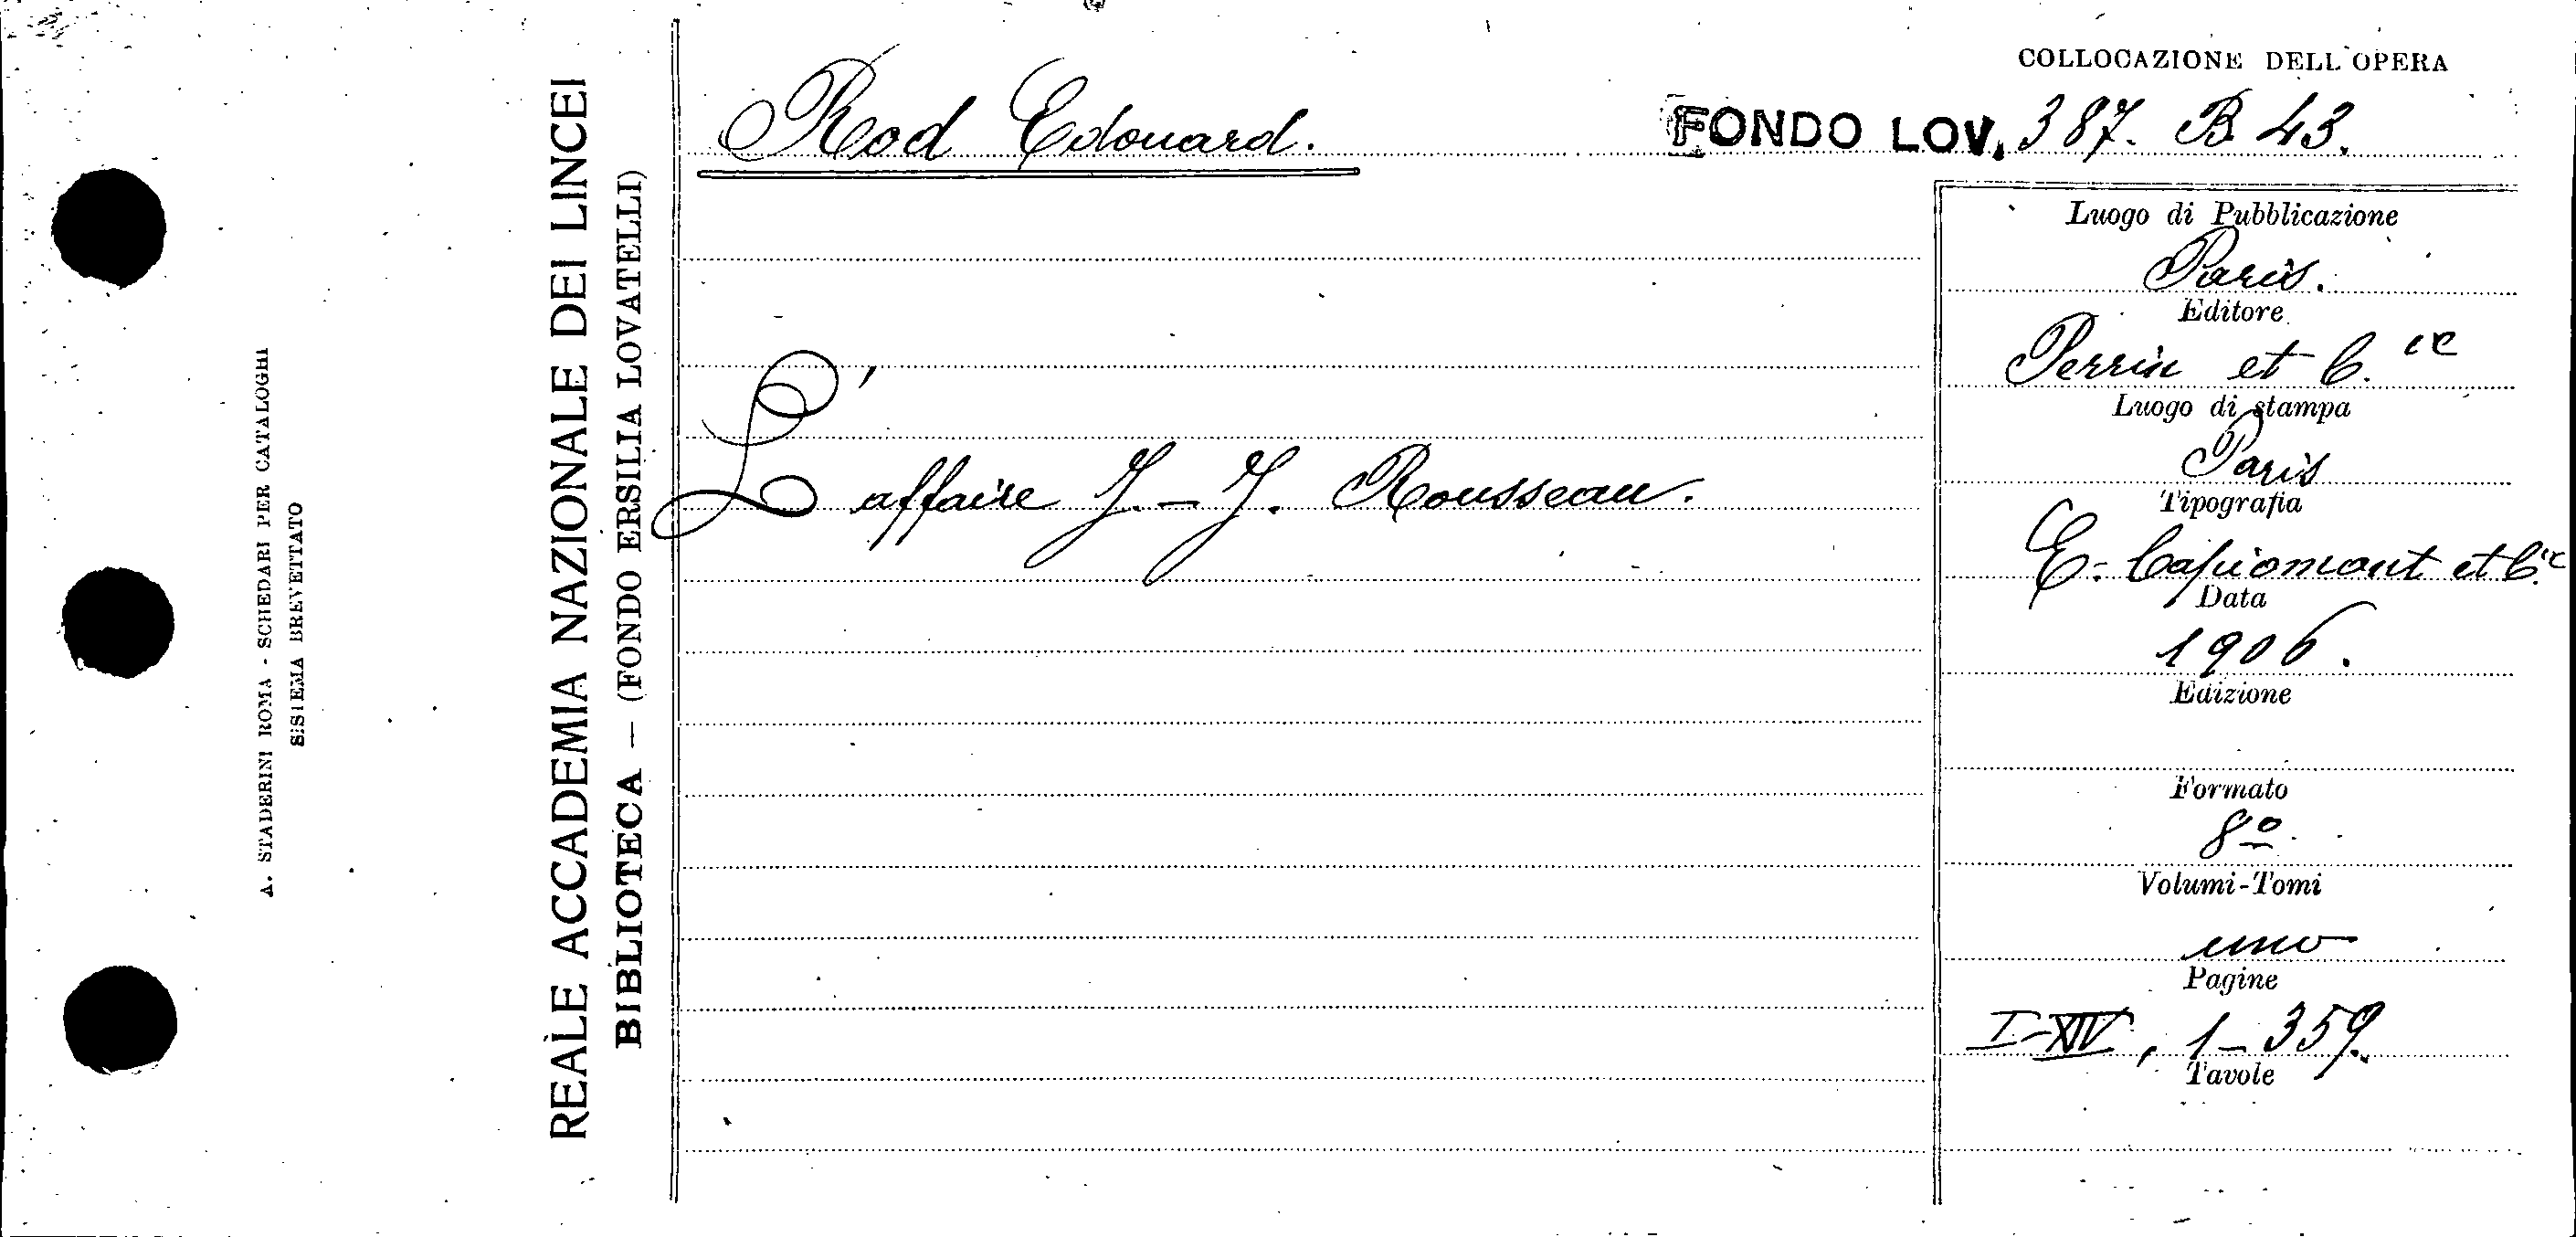 A. STADERINI ROMA - SCHEDARI PER CATALOGHI
SISTEMA BREVETTATO
REALE ACCADEMIA NAZIONALE DEI LINCEI
BIBLIOTECA — (FONDO ERSILIA LOVATELLI)
Rod Edouard.
COLLOCAZIONE DELL'OPERA
FONDO LOV. 387. B 43.
L'affaire J.-J. Rousseau.
Luogo di Pubblicazione
Paris.
Editore
Perrin et C.ie
Luogo di stampa
Paris
Tipografia
E. Capiomont et C.ie
Data
1906.
Edizione
Formato
8º
Volumi-Tomi
uno
Pagine
I-XIV, 1-359.
Tavole